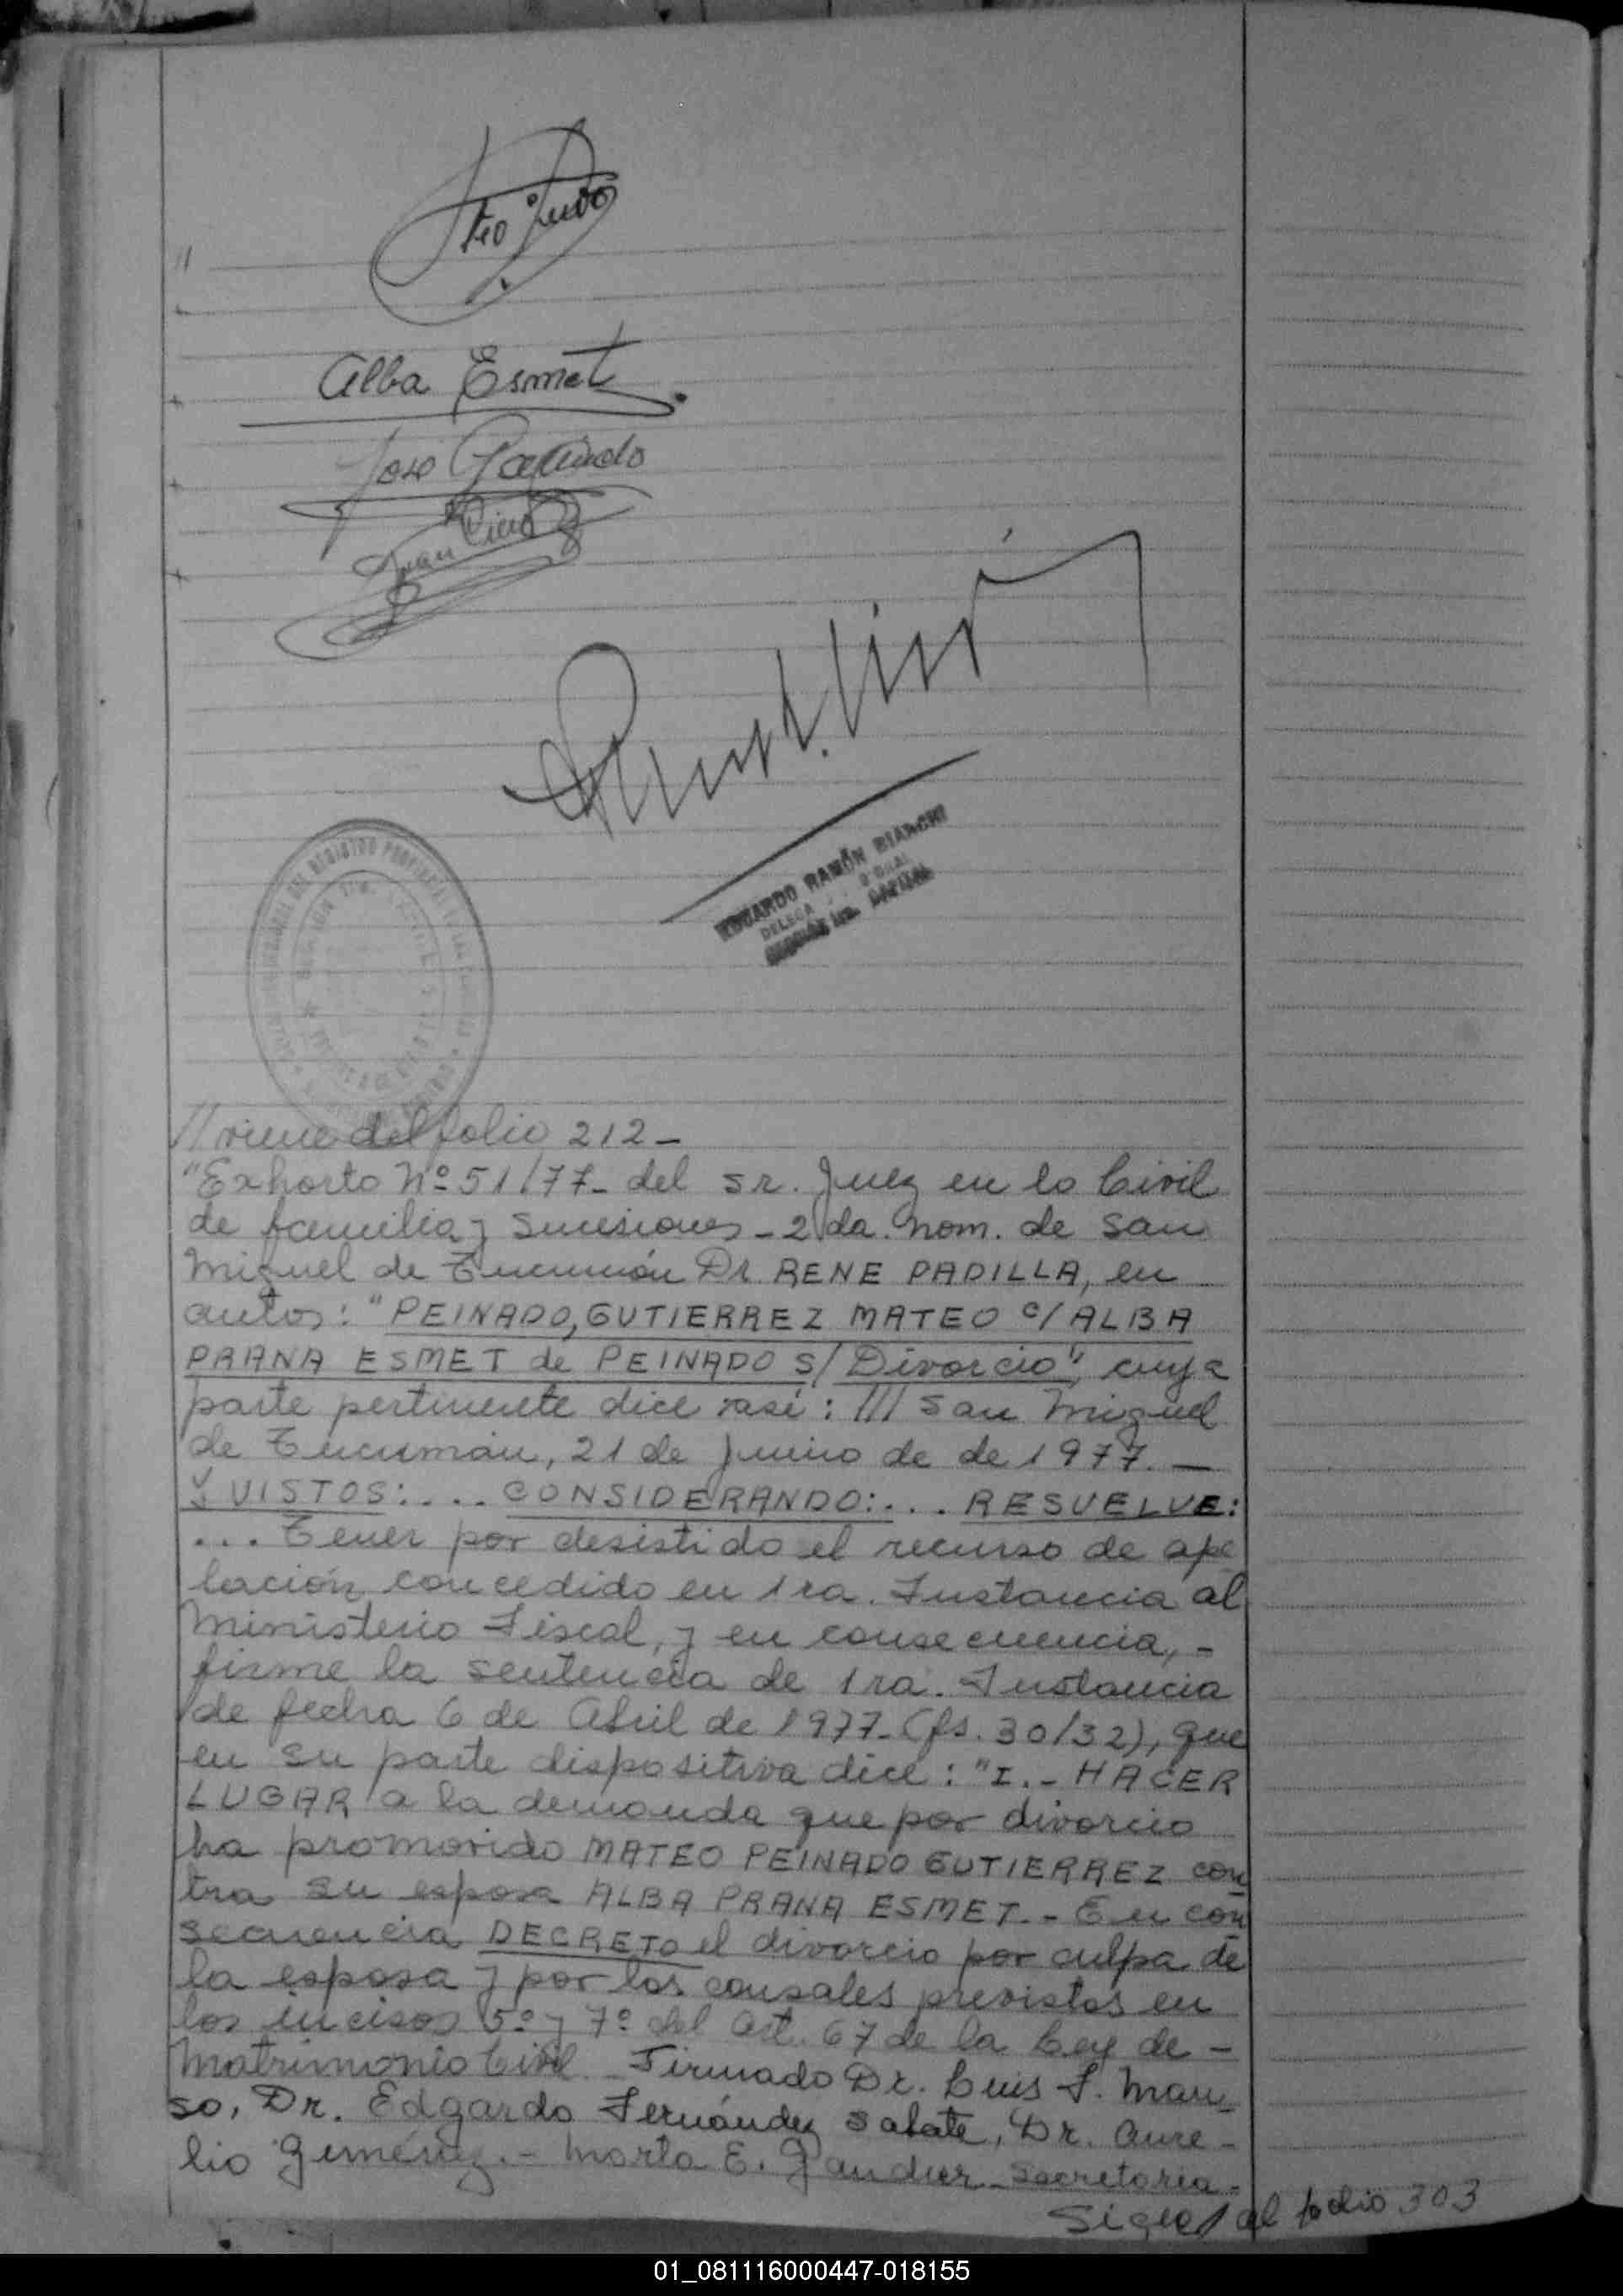 Alba Esmet
Jose
Juan
EDUARDO RAMÓN BIANCHI
DELEGA
SECCIÓN 1ra. CAPITAL
DEL REGISTRO
//viene del folio 212-
"Exhorto Nº 51/77- del Sr. Juez en lo Civil
de familia y Sucesiones - 2da. Nom. de San
Miguel de Tucumán Dr. RENE PADILLA, en
autos: "PEINADO, GUTIERREZ MATEO c/ ALBA
PRANA ESMET de PEINADO s/ Divorcio", cuya
parte pertinente dice así: /// San Miguel
de Tucumán, 21 de Junio de de 1977.—
Y VISTOS:.... CONSIDERANDO:... RESUELVE:
... Tener por desistido el recurso de ape
lación concedido en 1ra. Instancia al
Ministerio Fiscal, y en consecuencia, -
firme la sentencia de 1ra. Instancia
de fecha 6 de Abril de 1977- (fs. 30/32), que
en su parte dispositiva dice: "I.- HACER
LUGAR a la demanda que por divorcio
ha promovido MATEO PEINADO GUTIERREZ con
tra su esposa ALBA PRANA ESMET.- En con
secuencia DECRETO el divorcio por culpa de
la esposa y por las causales previstas en
los incisos 5º y 7º del Art. 67 de la Ley de -
Matrimonio Civil.- Firmado Dr. Luis F. Man_
so, Dr. Edgardo Fernández Sabate, Dr. Aure-
lio Giménez.- Marta E. Gandur - Secretaria -
Sigue al folio 303
01_081116000447-018155